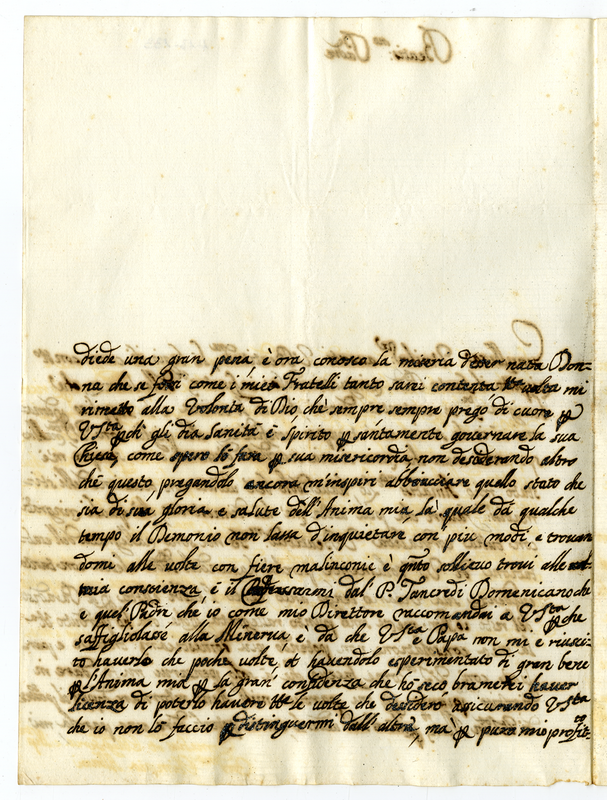 diede una gran pena, è ora conosco la miseria d'esser nata Don=
na che se fossi come i miei Fratelli tanto sarei contenta volta mi
rimetto alla Volontà di Dio chè sempre sempre prego di cuore p
V Sta p chi gli dia Sanità è Spirito p santamente governare la sua
Chiesa, come spero lo farà p sua misericordia, non desiderando altro
chè questo, pregandolo ancora m'inspiri abbracciare quello stato che
sia di sua gloria e salute dell'Anima mia, la quale da qualche
tempo il Demonio non lassa d'inquietare con più modi, e trouan
domi alle volte con fiere malinconie è qnto sollievo trovi alle
mia conscienza, è il Confessarmi dal P. Tancredi Domenicano che
e quel Padre che io come mio Direttore raccomandai a V Sta p che
s'affigliolasse alla Minerva, è da che V Sta è Papa non mi è riusci=
to haverlo che poche volte, et havendolo esperimentato di gran bene
p l'Anima mia, p la gran confidenza che hò seco, bramerei haver
licenza di poterlo havere tte le volte che desidero assicurando V Sta
che io non lo faccio p distinguermi dall'altre, mà p puro mio profit=
to
Beatmo Padre